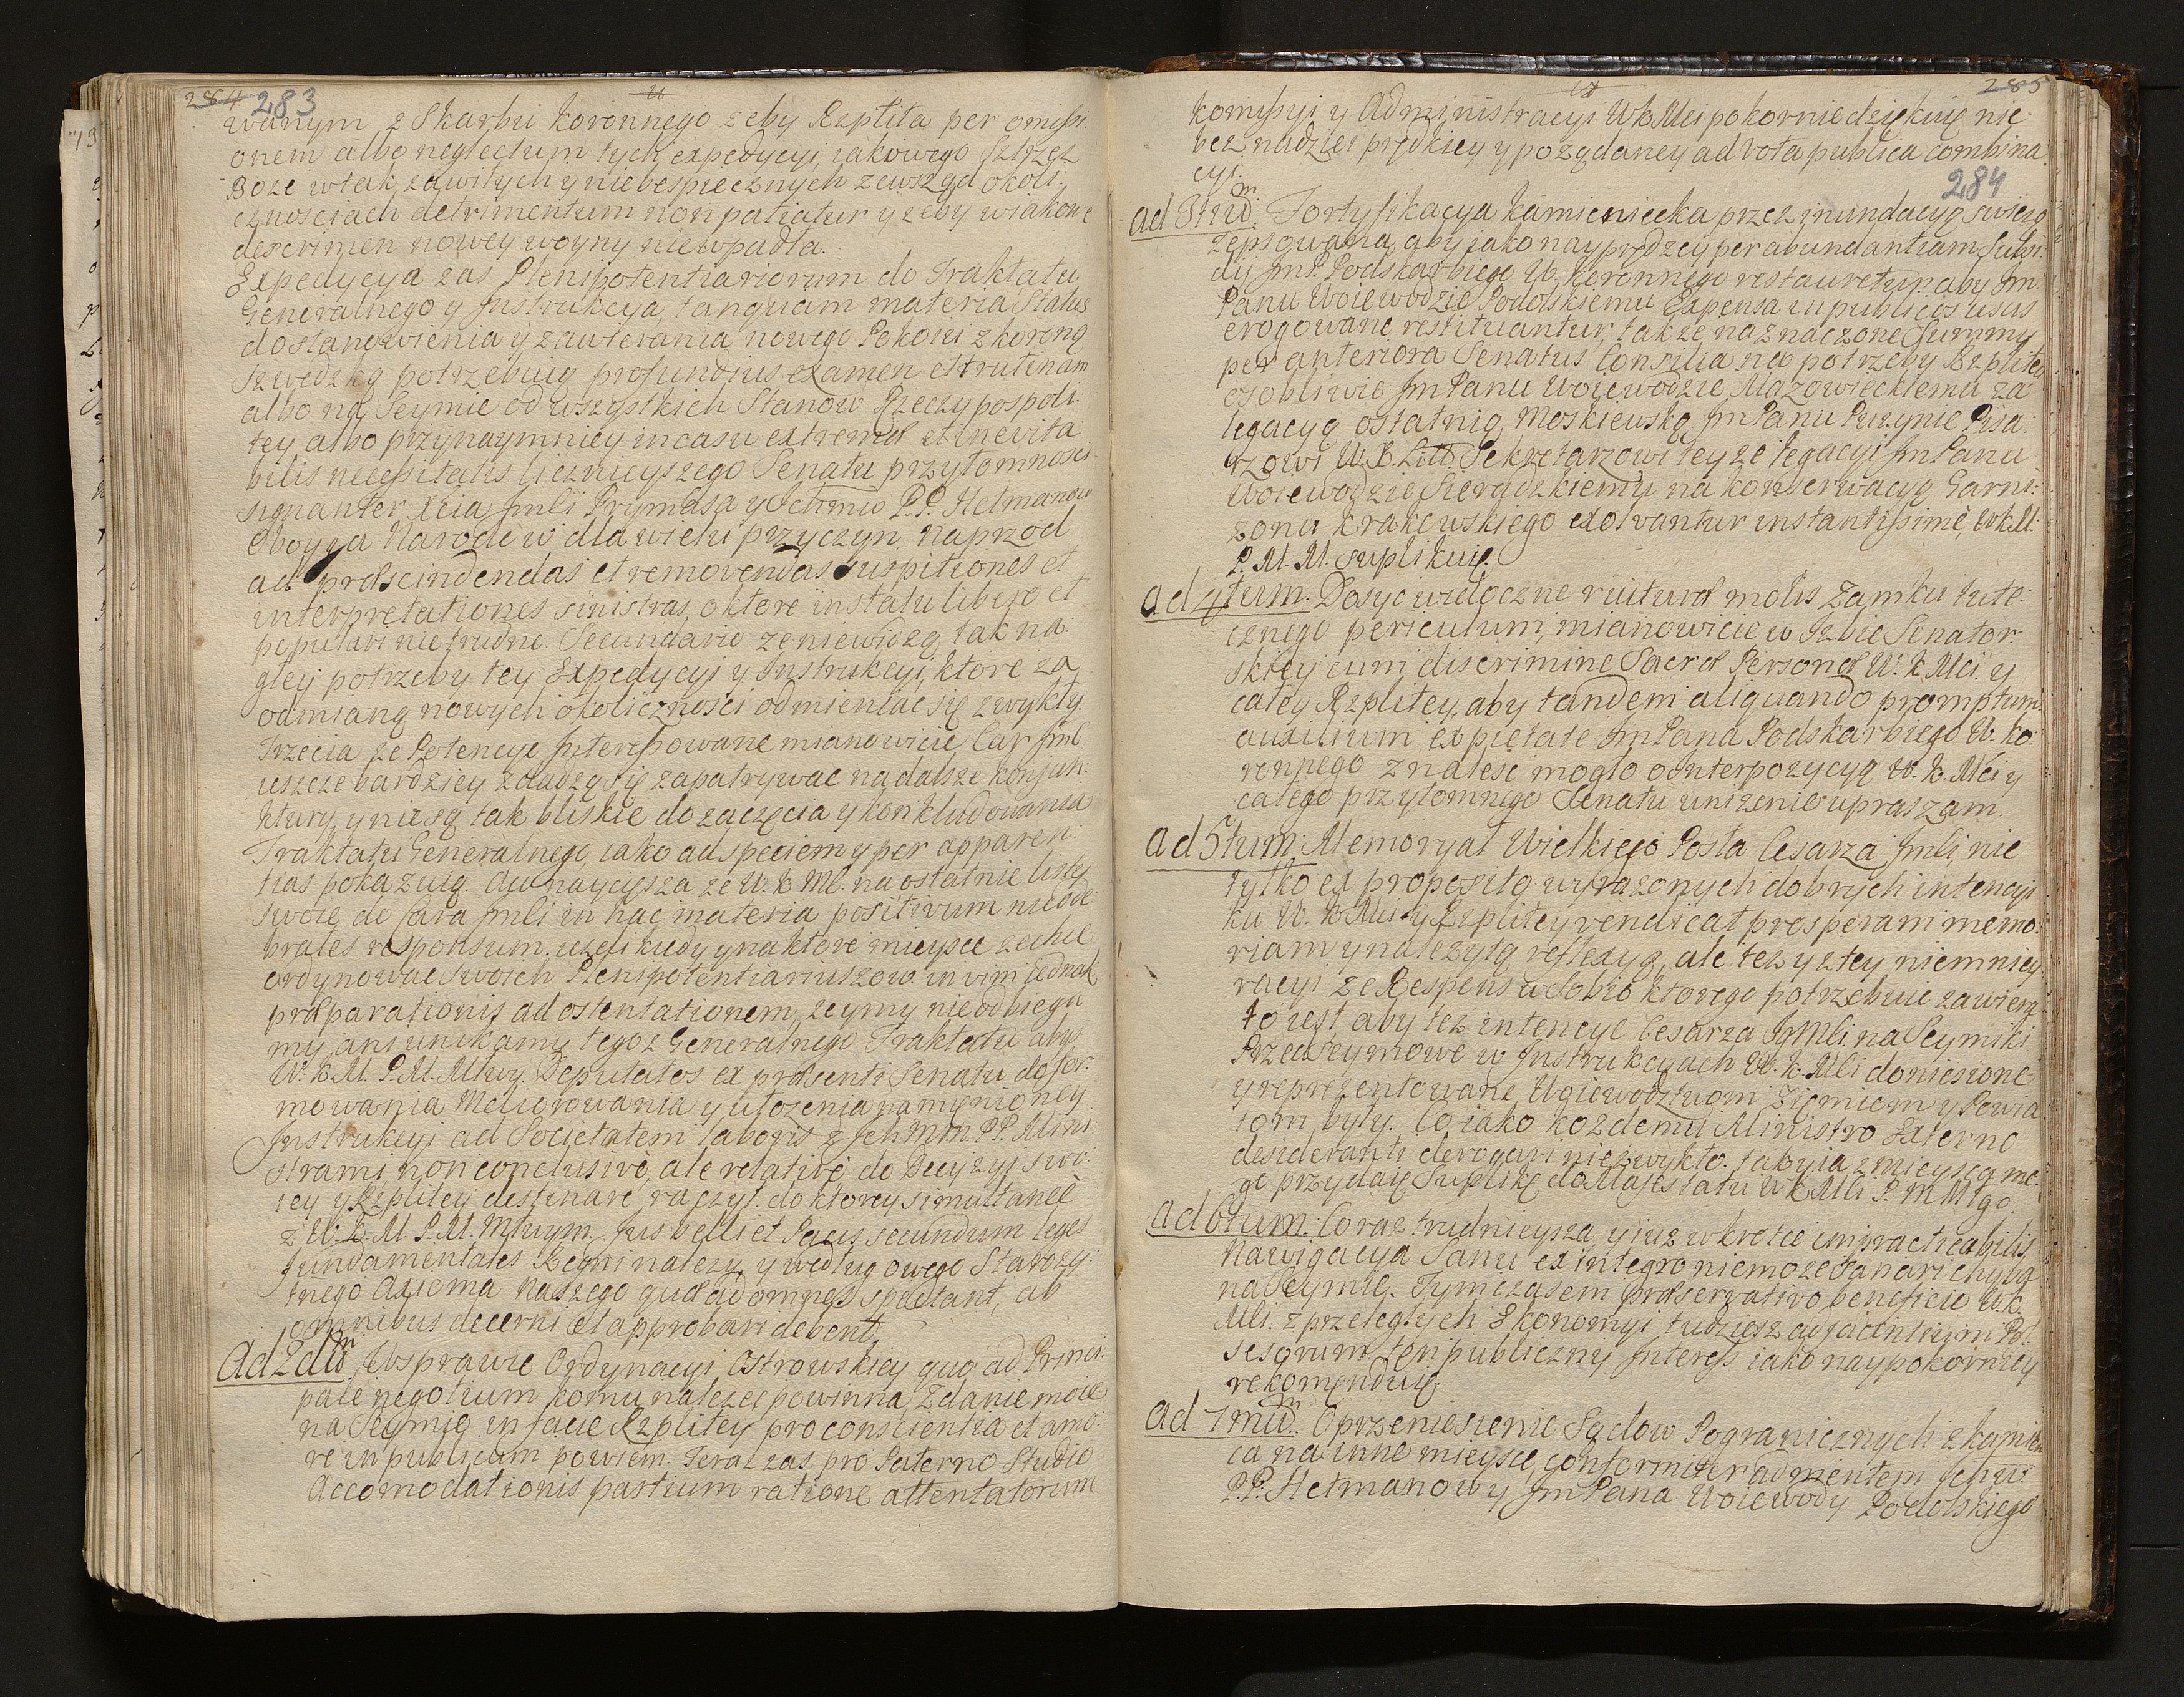 284 283
wanym z Skarbu koronnego zeby Rzplita per omissi:
onem albo neglectum tych expedycyi iakowego strzez
Boze w tak zawiłych y niebespiecznych zewsząd okoli:
cznosciach detrimentum non patiatur y zeby w iakowe
descrimen nowey woyny niewpadła.
Expedycya zas Plenipotentiariorum do Traktatu
Generalnego y Instrukcya, tanquam materia Status
do stanowienia y zawierania nowego Pokoiu z koroną
Szwedzką potrzebuią profundius examen et trutinam
albo na Seymie od wszystkich Stanow Rzeczypospoli:
tey albo przynaymniey in casu extremæ et inevita:
bilis necessitatis licznieyszego Senatu przytomnosci
signanter Xcia Jmci Prymasa y Ichmciow P.P. Hetmanow
oboyga Narodow dla wielu przyczyn. Naprzod
ad præscindendas et removendas suspitiones et
interpretationes sinistras, o ktore in statu libero et
populari nie trudno. Secundario ze niewidzą tak na:
gley potrzeby tey Expedycyi y Instrukcyi, ktore za
odmianą nowych okolicznosci odmieniac się zwykły.
Trzecia ze Potencye Interessowane mianowicie Car Jmc
ieszcze bardziey zdadzą się zapatrywac na dalsze koniun:
ktury, y nie są tak bliskie do zaczęcia y konkludowania
Traktatu Generalnego, iako ad speciem y per apparen:
tias pokazuią. A co naycięsza ze W. K. Mc. na ostatnie listy
swoie do Cara Jmci in hac materia positivum nie ode
brałes responsum, iezeli kiedy y na ktore mieysce zechce
ordynowac swoich Plenipotentiariuszow. in vim iednak
præparationis ad ostentationem, ze y my nie odbiega
my, ani unikamy tegoz Generalnego Traktatu abys
W. K. M. P. M. Młwy. Deputatos ex præsenti Senatu do for:
mowania Meliorowania y ułozenia namienioney
Instrukcyi ad Societatem laboris z Ichmm. PP. Mini:
strami non conclusivè, ale relativè do Decyzyi swo:
iey y Rzplitey destinare raczył. do ktorey simultaneè
z W. K. M. P. M. Młwym. Jus belli et Pacis secundum leges
fundamentales Regni nalezy, y według owego Starozy:
tnego Axioma naszego quæ ad omnes spectant, ab
omnibus decerni et approbari debent.
Ad 2dũ. W sprawie Ordynacyi Ostrowskiey quo ad Princi:
pale negotium komu nalezec powinna, zdanie moie
na Seymie in facie Rzplitey pro conscientia et amo:
re in publicum powiem. Teraz zas pro Paterno Studio
Accomodationis partium ratione attentatorum
285
284
komissyi y Administracyi W K Mci pokornie dziękuię nie
bez nadziei prędkiey y pożądaney ad vota publica combina
cyi.
ad 3tiũ. Fortyfikacya kamieniecka przez inundacyą swiezo
zepsowana, aby iako nayprędzey per abundantiam Subsi:
dy JmP. Podskarbiego W. Koronnego restauretur, aby Jm.
Panu Woiewodzie Podolskiemu Expensa in publicos usus
erogowane restituantur, takze naznaczone Summy
per anteriora Senatus Consilia na potrzeby Rzplitey
osobliwie Jm Panu Woiewodzie Mazowieckiemu za
legacyą ostatnią Moskiewską, Jm Panu Puzynie Pisa:
rzowi W. X. Litt. Sekretarzowi teyze legacyi Jm Panu
Woiewodzie Sieradzkiemu na konserwacyą Garni:
zonu krakowskiego exolvantur instantissimè, W K M.
P. M. M. suplikuię.
ad 4tum. Dosyc widoczne rituræ molis Zamku tute:
cznego periculum, mianowicie w Izbie Senator:
skiey cum discrimine Sacræ Personæ W. K. Mci. y
całey Rzplitey, aby tandem aliquando promptum
auxilium ex pietate Jm Pana Podskarbiego W. Ko:
ronnego znalesc mogło o Interpozycyą W. K. Mci y
całego przytomnego Senatu unizenie upraszam.
ad 5tum. Memoryał Wielkiego Posła Cesarza Jmci, nie
tylko ex proposito wyrazonych dobrych intencyi
ku W. K Mci y Rzplitey vendicat prosperam memo:
riam y nalezytą reflexyą, ale tez y z tey niemniey
racyi ze Respons w sobie ktorego potrzebuie zawiera
to iest aby tez intencye Cesarza JgMci. na Seymiki
Przedseymowe w Instrukcyach W. K. Mci doniesione
y reprezentowane Woiewodztwom Ziemiom y Powia
tom były. Co iako kozdemu Ministro Externo
desideranti derogari niezwykło. tak y ia z mieysca me:
go przydaię Suplikę do Maiestatu W K Mci P. M Młgo.
ad 6tum. Coraz trudnieysza, y iuz w krotce impracticabilis
Nawigacya Sanu ex integro niemoze sanari chyba
na Seymie. Tymczasem præservativo beneficio W. K.
Mci. z przeległych Ekonomyi tudziesz adiacentium Pos
sesorum, ten publiczny Interess iako naypokorniey
rekomenduię.
ad 7mũ. O przeniesienie Sądow Pogranicznych z kamień
ca na inne mieysce, conformiter ad mentem Ichw:
P.P. Hetmanow y Jm Pana Woiewody Podolskiego